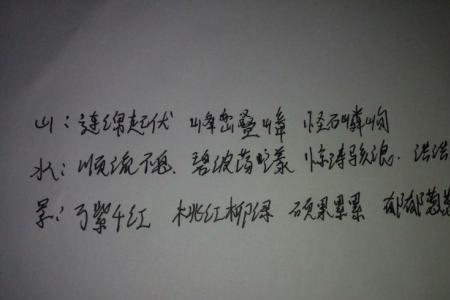 山：连绵起伏 峰峦叠嶂 怪石嶙峋
水：顺流不息、碧波荡漾 惊涛骇浪、浩浩
：万紫千红 桃红柳绿 硕果累累 郁郁葱葱